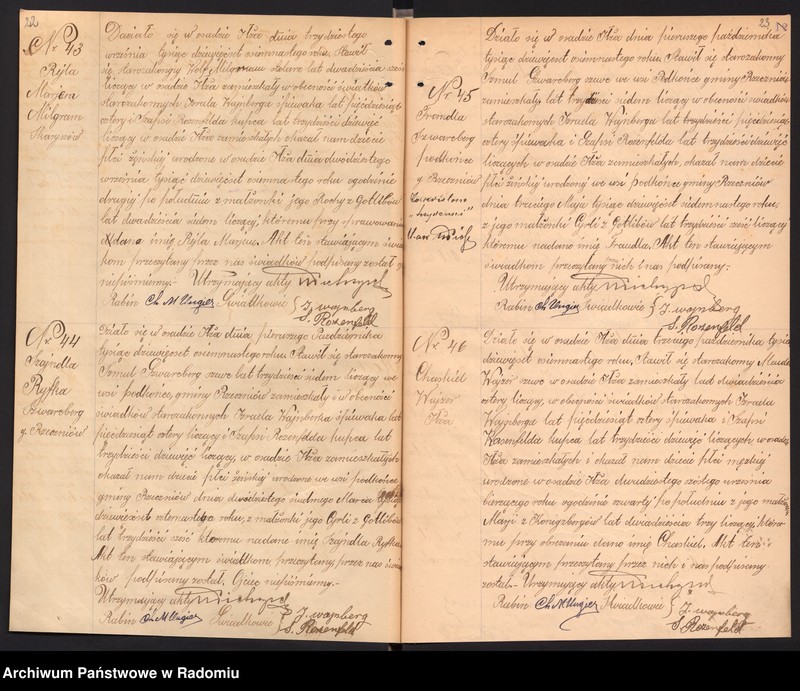 22
Nr 43
Ryla
Marjem
Milgram
Działo się w osadzie Iłża dnia trzydziestego
września tysiąc dziewięćset osiemnastego roku. Stawił
się starozakonny Wolf Milgram stolarz lat dwadzieścia sześć
liczący w osadzie Iłża zamieszkały w obecności świadków
starozakonnych Izraela Wajnberga śpiewaka lat pięćdziesiąt
cztery i Szapsi Rozenfelda kupca lat trzydzieści dziewięć
liczących w osadzie Iłża zamieszkałych okazał nam dziecię
płci żyńskiej urodzone w osadzie Iłża dnia dwódziestego
września tysiąc dziewięćset osimnastego roku o godzinie
drugiej po południu z małżonki jego Rochy z Gotlibów
lat dwadzieścia sidem liczącej, któremu przy
imię Ryla Marjem. Akt ten stawiającym świad
kom przeczytany przez nas świadków podpisany został
niepiśmienny.- Utrzymujący akty
Rabin Ch M Ungier Świadkowie { I. wajnberg
S. Rozenfeld
Nr 44
Szajndla
Ryfka
Szwarcberg
g. Rzeczniów
Działo się w osadzie Iłża dnia pierwszego Października
tysiąc dziewięćset osimnastego roku. Stawił się starozakonny
Szmul Szwarcberg szewc lat trzydzieści sidem liczący we
wsi Podkońce, gminy Rzeczniów zamieszkały i w obecności
świadków starozakonnych Izraela Wajnberka śpiewaka lat
pięćdziesiąt cztery liczący i Szapsi Rozenfelda kupca lat
trzydzieści dziewięć liczący, w osadzie Iłża zamieszkałych
okazał nam dziecię płci żeńskiej urodzone we wsi podkońce
gminy Rzeczniów dnia dwódziestego siudmego Marca
dziewięćset czternastego roku, z małżonki jego Cyrli z Gotlibów
lat trzydzieści sześć któremu nadano imię Szajndla Ryfka
Akt ten stawiającym świadkom przeczytany przez nas świad
ków podpisany został. Ojciec niepiśmienny.-
Utrzymujący akty
Rabin Ch M Ungier Świadkowie { I. wajnberg
S. Rozenfeld
23
Nr 45
Frandla
Szwarcberg
podkońce
g. Rzeczniów
Działo się w osadzie Iłża dnia pierwszego października
tysiąc dziewięćset osimnastego roku Stawił się starozakonny
Szmul Szwarcberg szewc we wsi Podkońce gminy Rzeczniów
zamieszkały, lat trzydzieści sidem liczący w obecności świadków
starozakonnych Izraela Wajnberga lat pięćdziesiąt
cztery śpiewaka i Szapsi Rozenfelda lat trzydzieści dziewięć
liczących w osadzie Iłża zamieszkałych, okazał nam dziecię
płci żeńskiej urodzony we wsi podkońce gminy Rzeczniów
dnia trzeciego Maja tysiąc dziewięćset sidemnastego roku,
z jego małżonki Cyrli z Gotlibów lat trzydzieści sześć liczącej
któremu nadano imię Frandla. Akt ten stawiającym
świadkom przeczytany nich i nas podpisany.-
Utrzymujący akty
Rabin Ch Ungier Świadkowie { I. wajnberg
S. Rozenfeld
Nr 46
Chaskiel
Wajzer
Iłża
Działo się w osadzie Iłża dnia trzeciego października tysiąc
dziewięćset osimnastego roku, Stawił się starozakonny
Wajzer szewc w osadzie Iłża zamieszkały lat dwadzieścia
cztery liczący, w obecności świadków starozakonnych Izraela
Wajnberga lat pięćdziesiąt cztery śpiewaka i Szapsi
Rozenfelda kupca lat trzydzieści dziewięć liczących w osadzie
Iłża zamieszkałych i okazał nam dziecię płci męzkiej
urodzone w osadzie Iłża dwudziestego szóstego września
bierzącego roku o godzinie czwartej po południu z jego małżonki
Maji z Königzbergów lat dwadzieścia trzy liczącej któro
mu przy obrzezaniu dano imię Chaskiel. Akt ten
stawiającym przeczytany przez nich i nas podpisany
został.- Utrzymujący akty
Rabin Ch. M. Ungier Świadkowie { I. wajnberg
S. Rozenfeld
Archiwum Państwowe w Radomiu